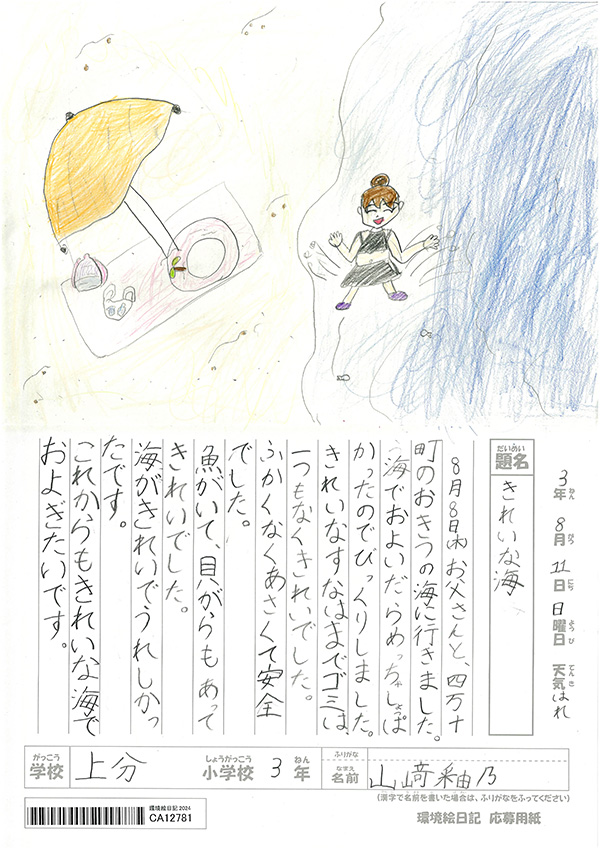 3年ねん 8月がつ 11日にち 日曜日ようび 天気てんき はれ
題名だいめい きれいな海
8月8日(木)お父さんと、四万十
町のおきつの海に行きました。
海でおよいだらめっちゃしょっぱ
かったのでびっくりしました。
きれいなすなはまでゴミは、
一つもなくきれいでした。
ふかくなくあさくて安全
でした。
魚がいて、貝がらもあって
きれいでした。
海がきれいでうれしかっ
たです。
これからもきれいな海で
およぎたいです。
がっこう しょうがっこう ねん ふりがな
学校 上分 小学校 3年 なまえ 名前 山﨑釉乃
(漢字で名前を書いた場合は、ふりがなをふってください)
環境絵日記 2024
CA12781
環境絵日記 応募用紙